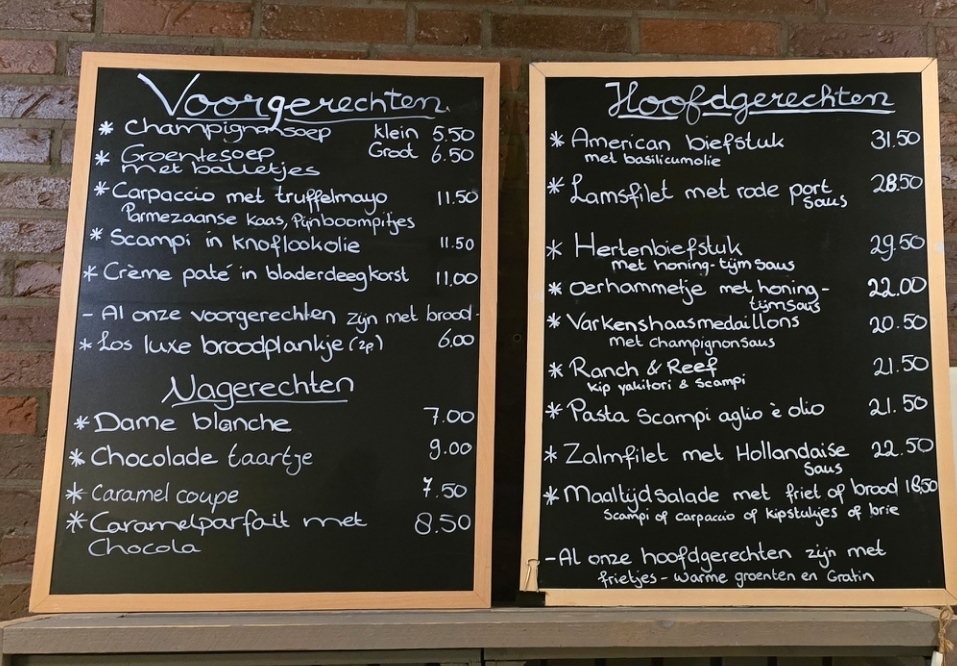 Voorgerechten
* Champignonsoep klein 5.50
* Groentesoep Groot 6.50
met balletjes
* Carpaccio met truffelmayo 11.50
Parmezaanse kaas, Pijnboompitjes
* Scampi in knoflookolie 11.50
* Crème paté in bladerdeegkorst 11.00
- Al onze voorgerechten zijn met brood -
* Los luxe broodplankje (2p) 6.00
Nagerechten
* Dame blanche 7.00
* Chocolade taartje 9.00
* Caramel coupe 7.50
* Caramelparfait met 8.50
Chocola
Hoofdgerechten
* American biefstuk 31.50
met basilicumolie
* Lamsfilet met rode port 28.50
saus
* Hertenbiefstuk 29.50
met honing-tijm saus
* Oerhammetje met honing- 22.00
tijmsaus
* Varkenshaasmedaillons 20.50
met champignonsaus
* Ranch & Reef 21.50
kip yakitori & scampi
* Pasta Scampi aglio è olio 21.50
* Zalmfilet met Hollandaise 22.50
saus
* Maaltijdsalade met friet of brood 18,50
Scampi of carpaccio of kipstukjes of brie
- Al onze hoofdgerechten zijn met
frietjes - warme groenten en Gratin